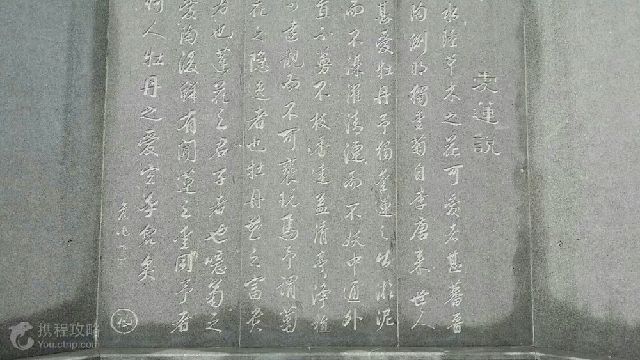 爱蓮説
水陸草木之花可愛者甚蕃晋
陶渊明獨爱菊自李唐来世人
甚愛牡丹予獨爱蓮之出淤泥
而不染濯清漣而不妖中通外
直不蔓不枝香遠益清亭亭净植
可遠觀而不可褻玩焉予謂菊
花之隐逸者也牡丹花之富貴
者也蓮花之君子者也噫菊之
爱陶後鮮有聞蓮之爱同予者
何人牡丹之爱宜乎眾矣
携程攻略
You.ctrip.com